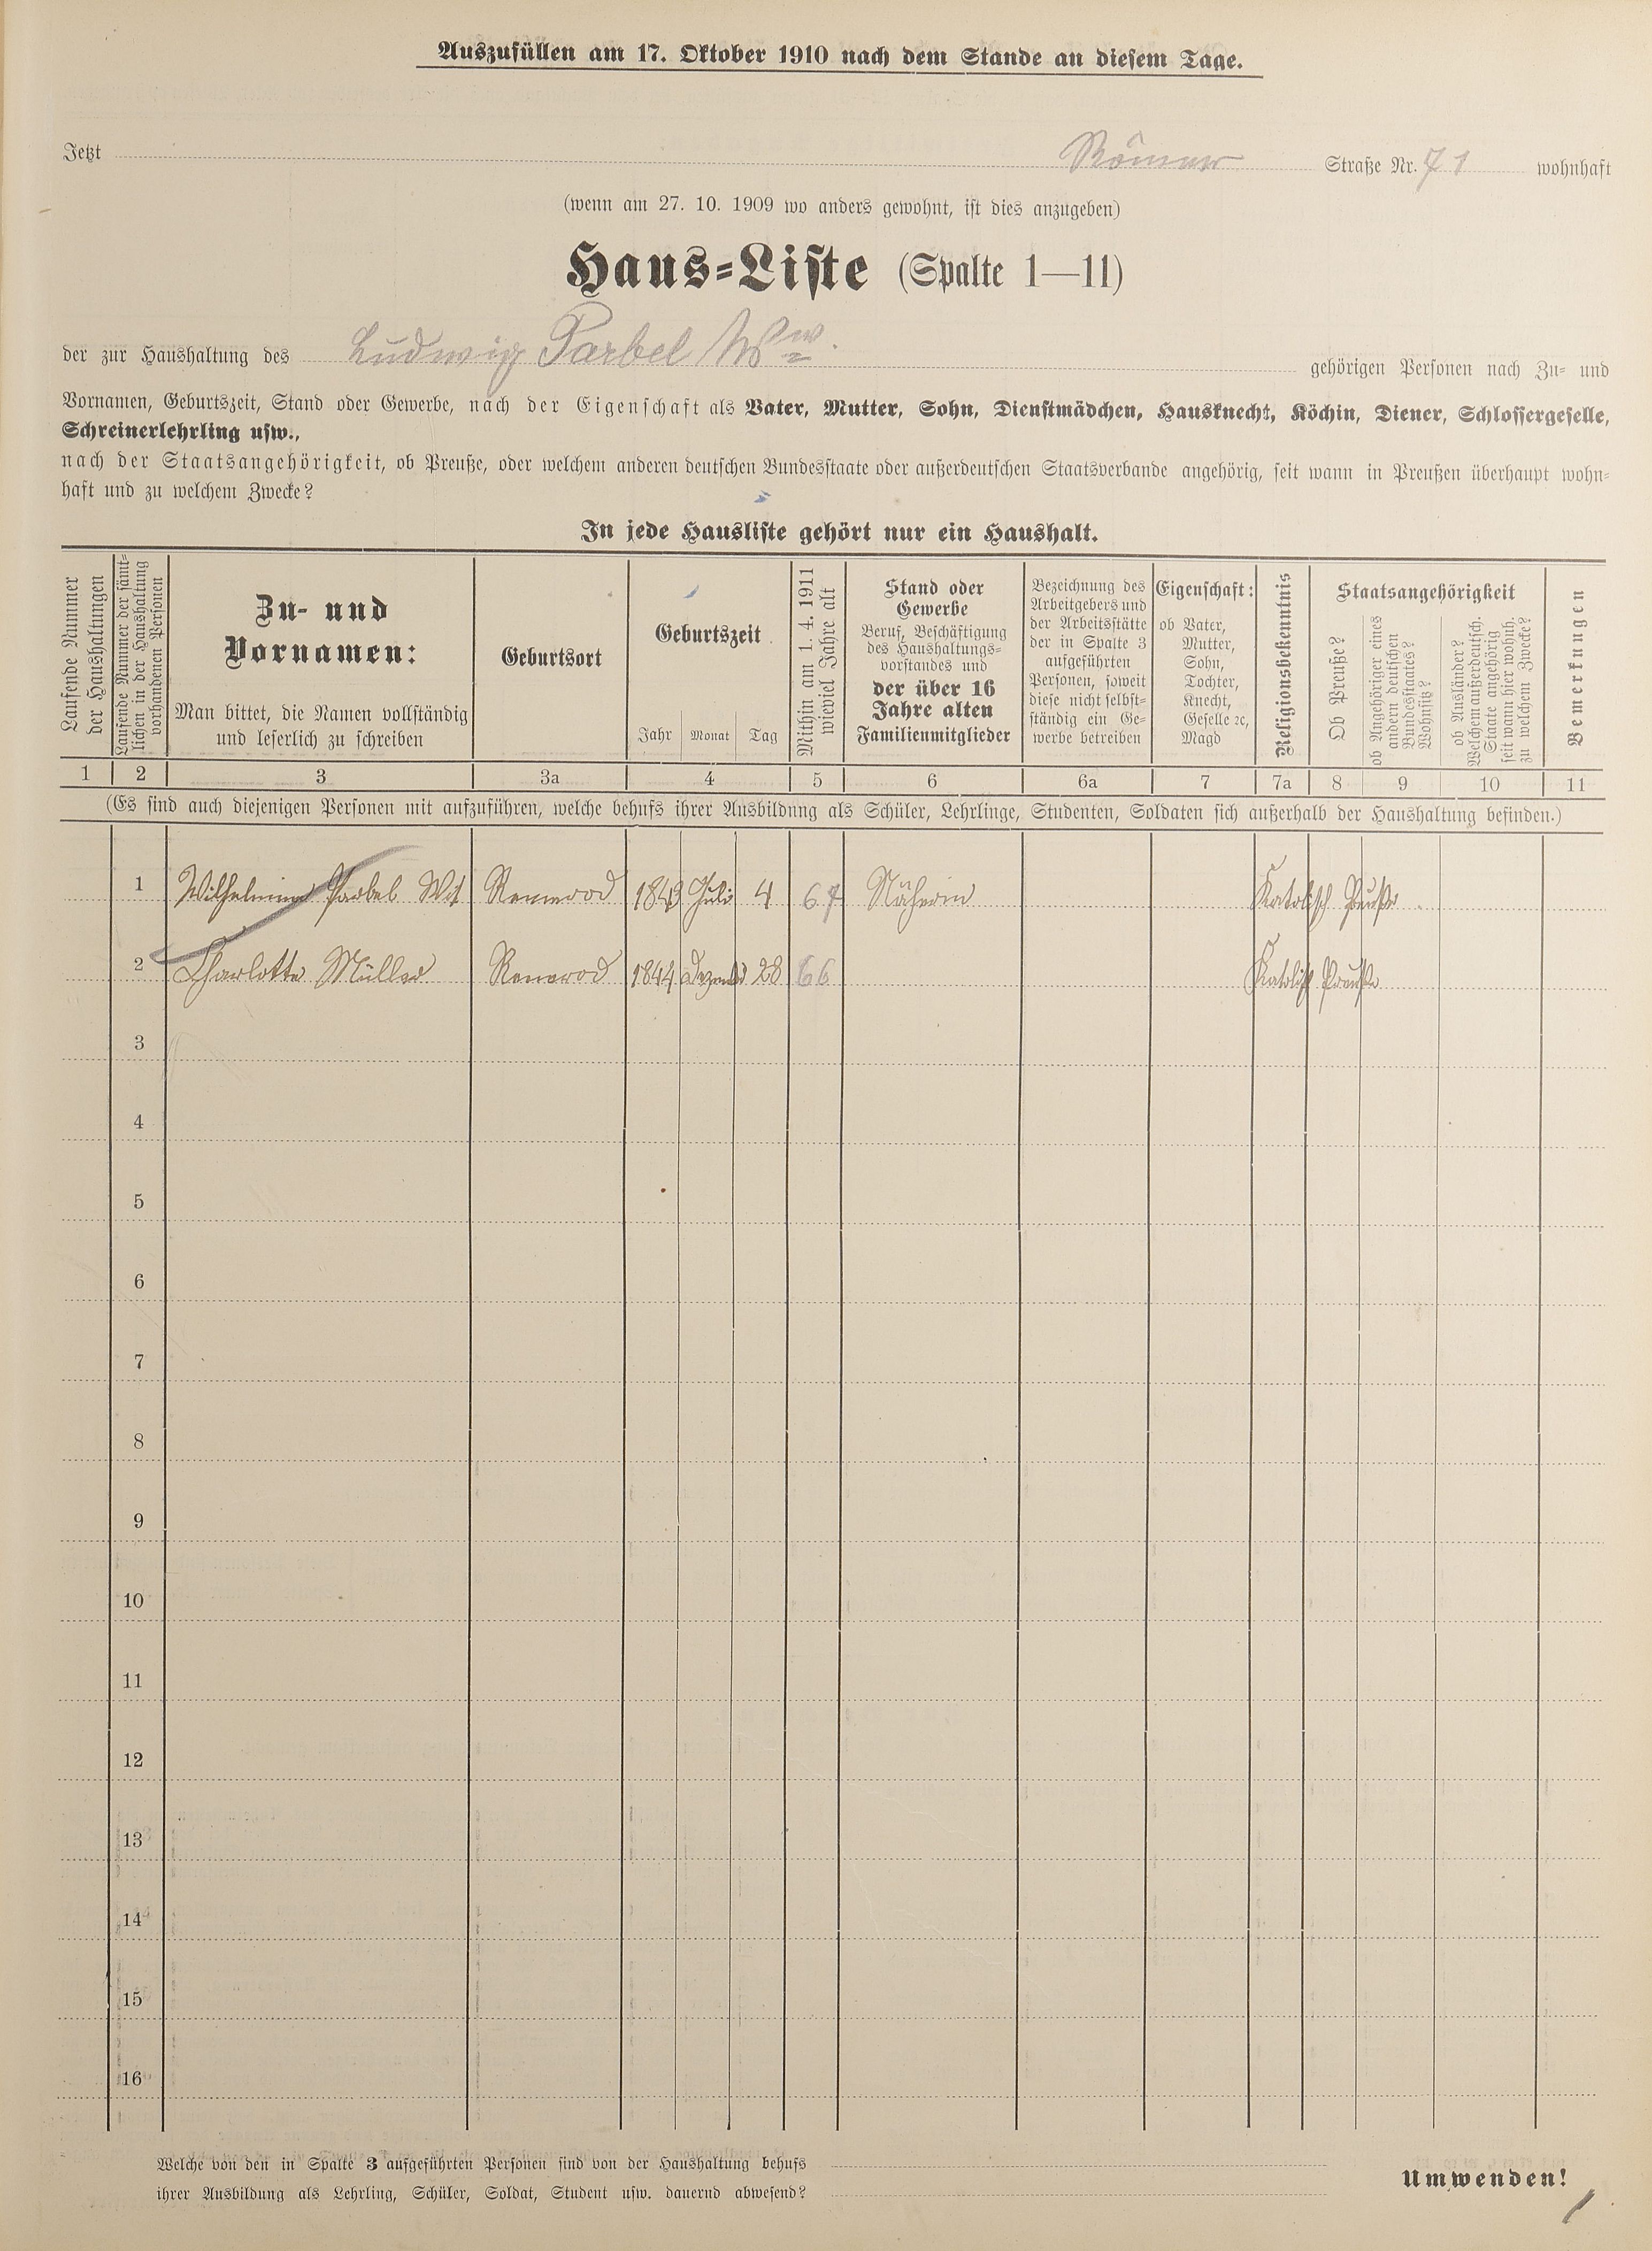 Auszufüllen am 17. Oktober 1910 nach dem Stande an diesem Tage.
Jetzt Römer Straße Nr. 71 wohnhaft
(wenn am 27. 10. 1909 wo anders gewohnt, ist dies anzugeben)
Haus-Liste (Spalte 1—11)
der zur Haushaltung des Ludwig Parbel Ww. gehörigen Personen nach Zu- und
Vornamen, Geburtszeit, Stand oder Gewerbe, nach der Eigenschaft als Vater, Mutter, Sohn, Dienstmädchen, Hausknecht, Köchin, Diener, Schlossergeselle,
Schreinerlehrling usw.,
nach der Staatsangehörigkeit, ob Preuße, oder welchem anderen deutschen Bundesstaate oder außerdeutschen Staatsverbande angehörig, seit wann in Preußen überhaupt wohn-
haft und zu welchem Zwecke?
In jede Hausliste gehört nur ein Haushalt.
Laufende Nummer
der Haushaltungen
Laufende Nummer der sämt-
lichen in der Haushaltung
vorhandenen Personen
Zu- und
Vornamen:
Man bittet, die Namen vollständig
und leserlich zu schreiben
Geburtsort
Geburtszeit
Jahr Monat Tag
Mithin am 1. 4. 1911
wieviel Jahre alt
Stand oder
Gewerbe
Beruf, Beschäftigung
des Haushaltungs-
vorstandes und
der über 16
Jahre alten
Familienmitglieder
Bezeichnung des
Arbeitgebers und
der Arbeitsstätte
der in Spalte 3
aufgeführten
Personen, soweit
diese nicht selbst-
ständig ein Ge-
werbe betreiben
Eigenschaft:
ob Vater,
Mutter,
Sohn,
Tochter,
Knecht,
Geselle ꝛc,
Magd
Religionsbekenntnis
Staatsangehörigkeit
Ob Preuße?
ob Angehöriger eines
andern deutschen
Bundesstaates?
Wohnsitz?
ob Ausländer?
Welchem außerdeutsch.
Staate angehörig
seit wann hier wohnh.
zu welchem Zwecke?
Bemerkungen
1 2 3 3a 4 5 6 6a 7 7a 8 9 10 11
(Es sind auch diejenigen Personen mit aufzuführen, welche behufs ihrer Ausbildung als Schüler, Lehrlinge, Studenten, Soldaten sich außerhalb der Haushaltung befinden.)
1 Parbel Wit 1843 Juli 4 67 Näherin Katolisch Preuße
2 Charlotte Müller 1844 28 66 Katolisch Preuße
3
4
5
6
7
8
9
10
11
12
13
14
15
16
Welche von den in Spalte 3 aufgeführten Personen sind von der Haushaltung behufs
ihrer Ausbildung als Lehrling, Schüler, Soldat, Student usw. dauernd abwesend?
Umwenden!